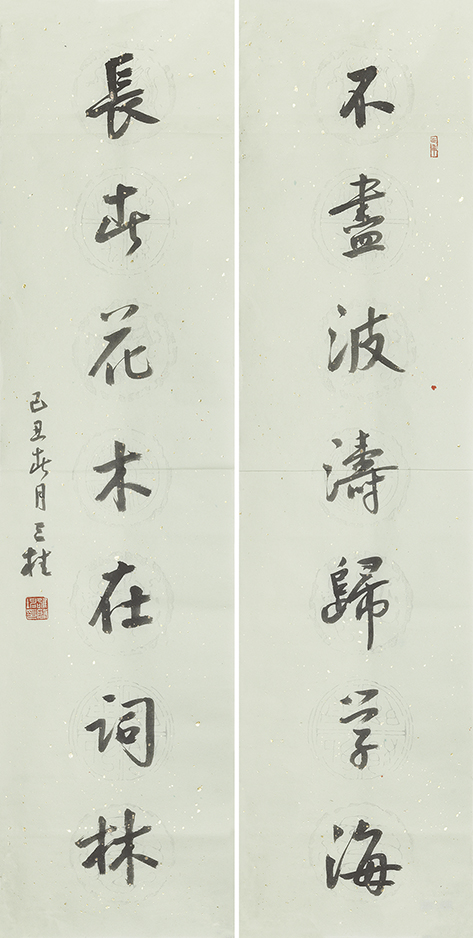 不盡波濤歸学海
長春花木在词林
己丑春月